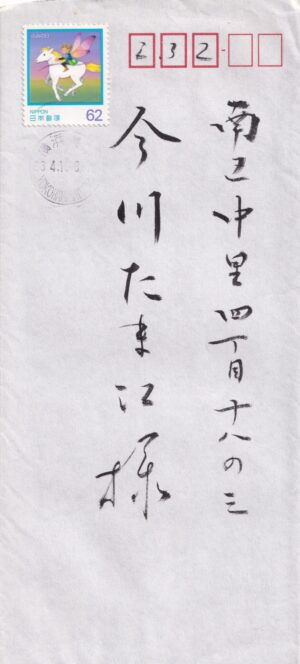 232-
南区中里四丁目十八の三
今川たま江様
NIPPON
日本郵便 62